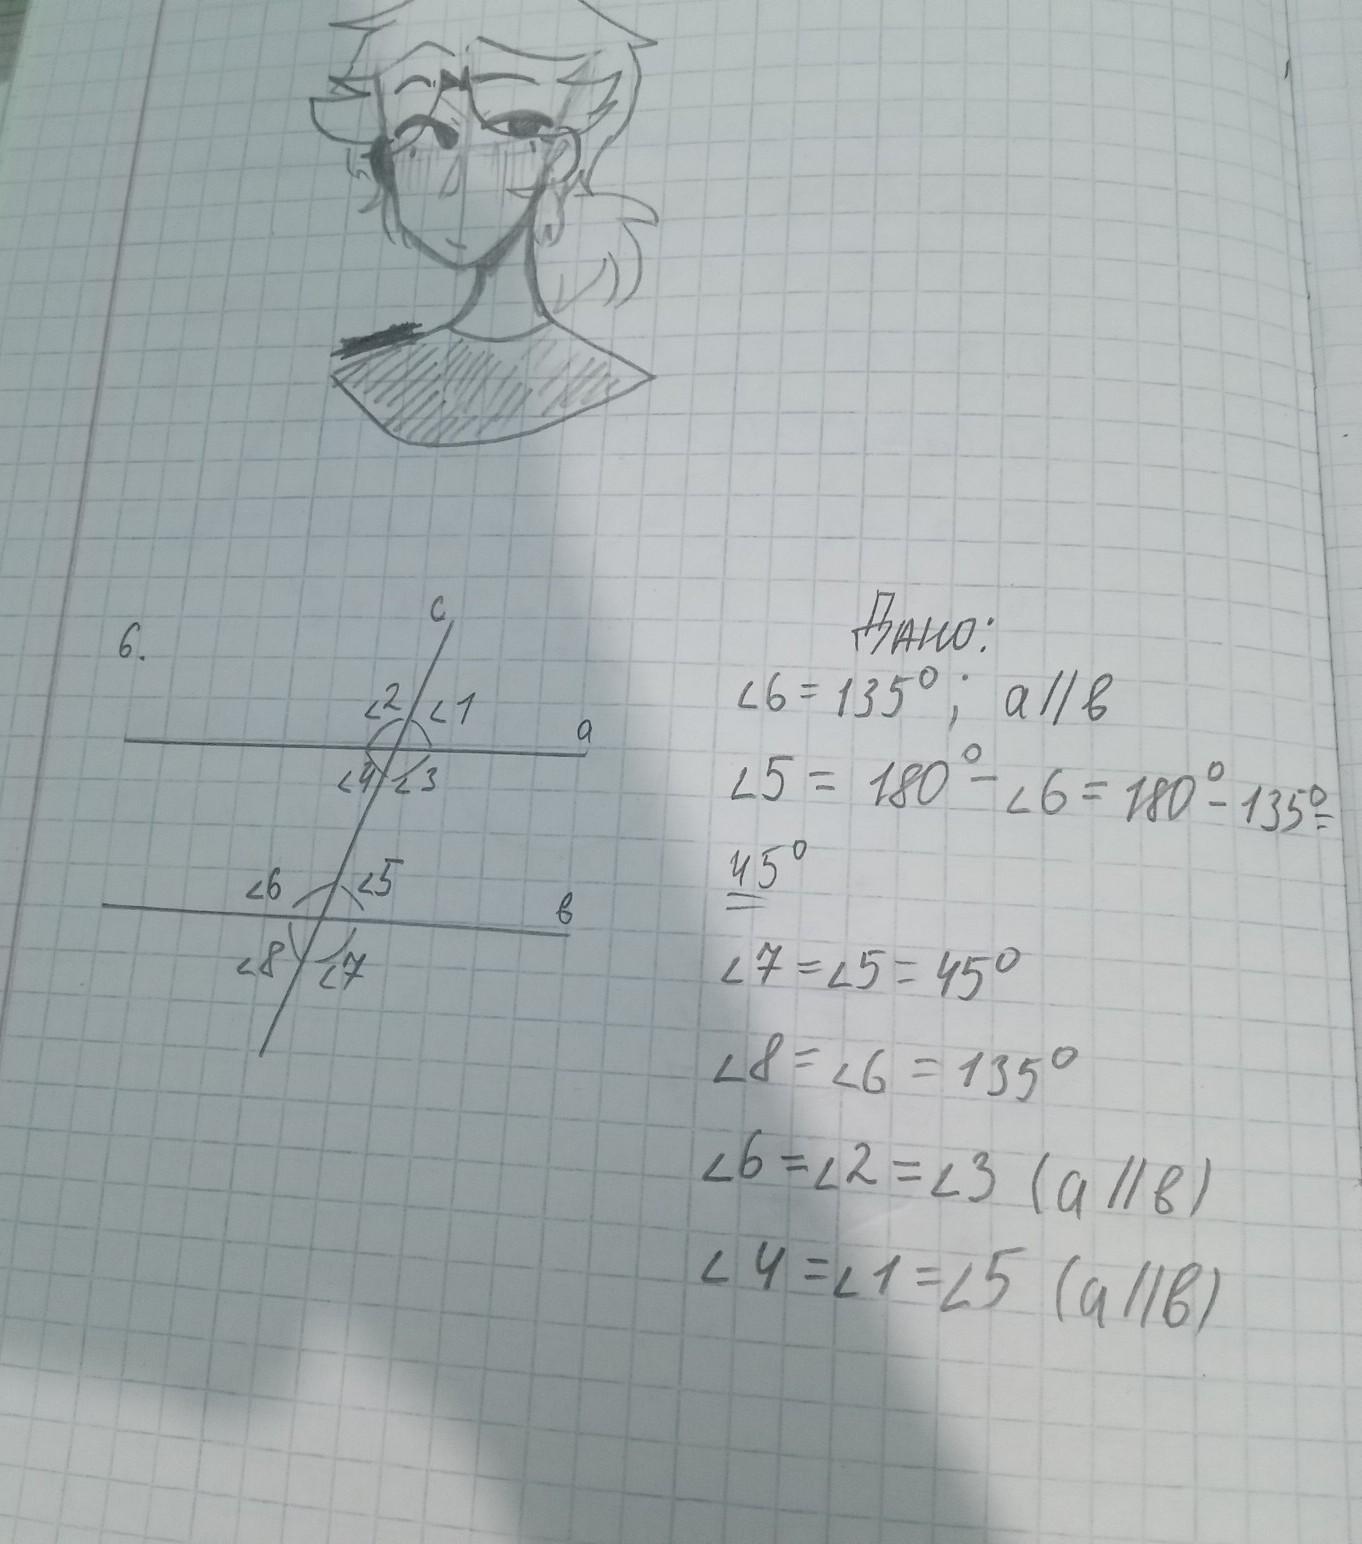 6.
c
∠2 ∠1
a
∠4 ∠3
∠6 ∠5
в
∠8 ∠7
Дано:
∠6 = 135°; a // в
∠5 = 180° - ∠6 = 180° - 135° =
45°
∠7 = ∠5 = 45°
∠8 = ∠6 = 135°
∠6 = ∠2 = ∠3 (a // в)
∠4 = ∠1 = ∠5 (a // в)